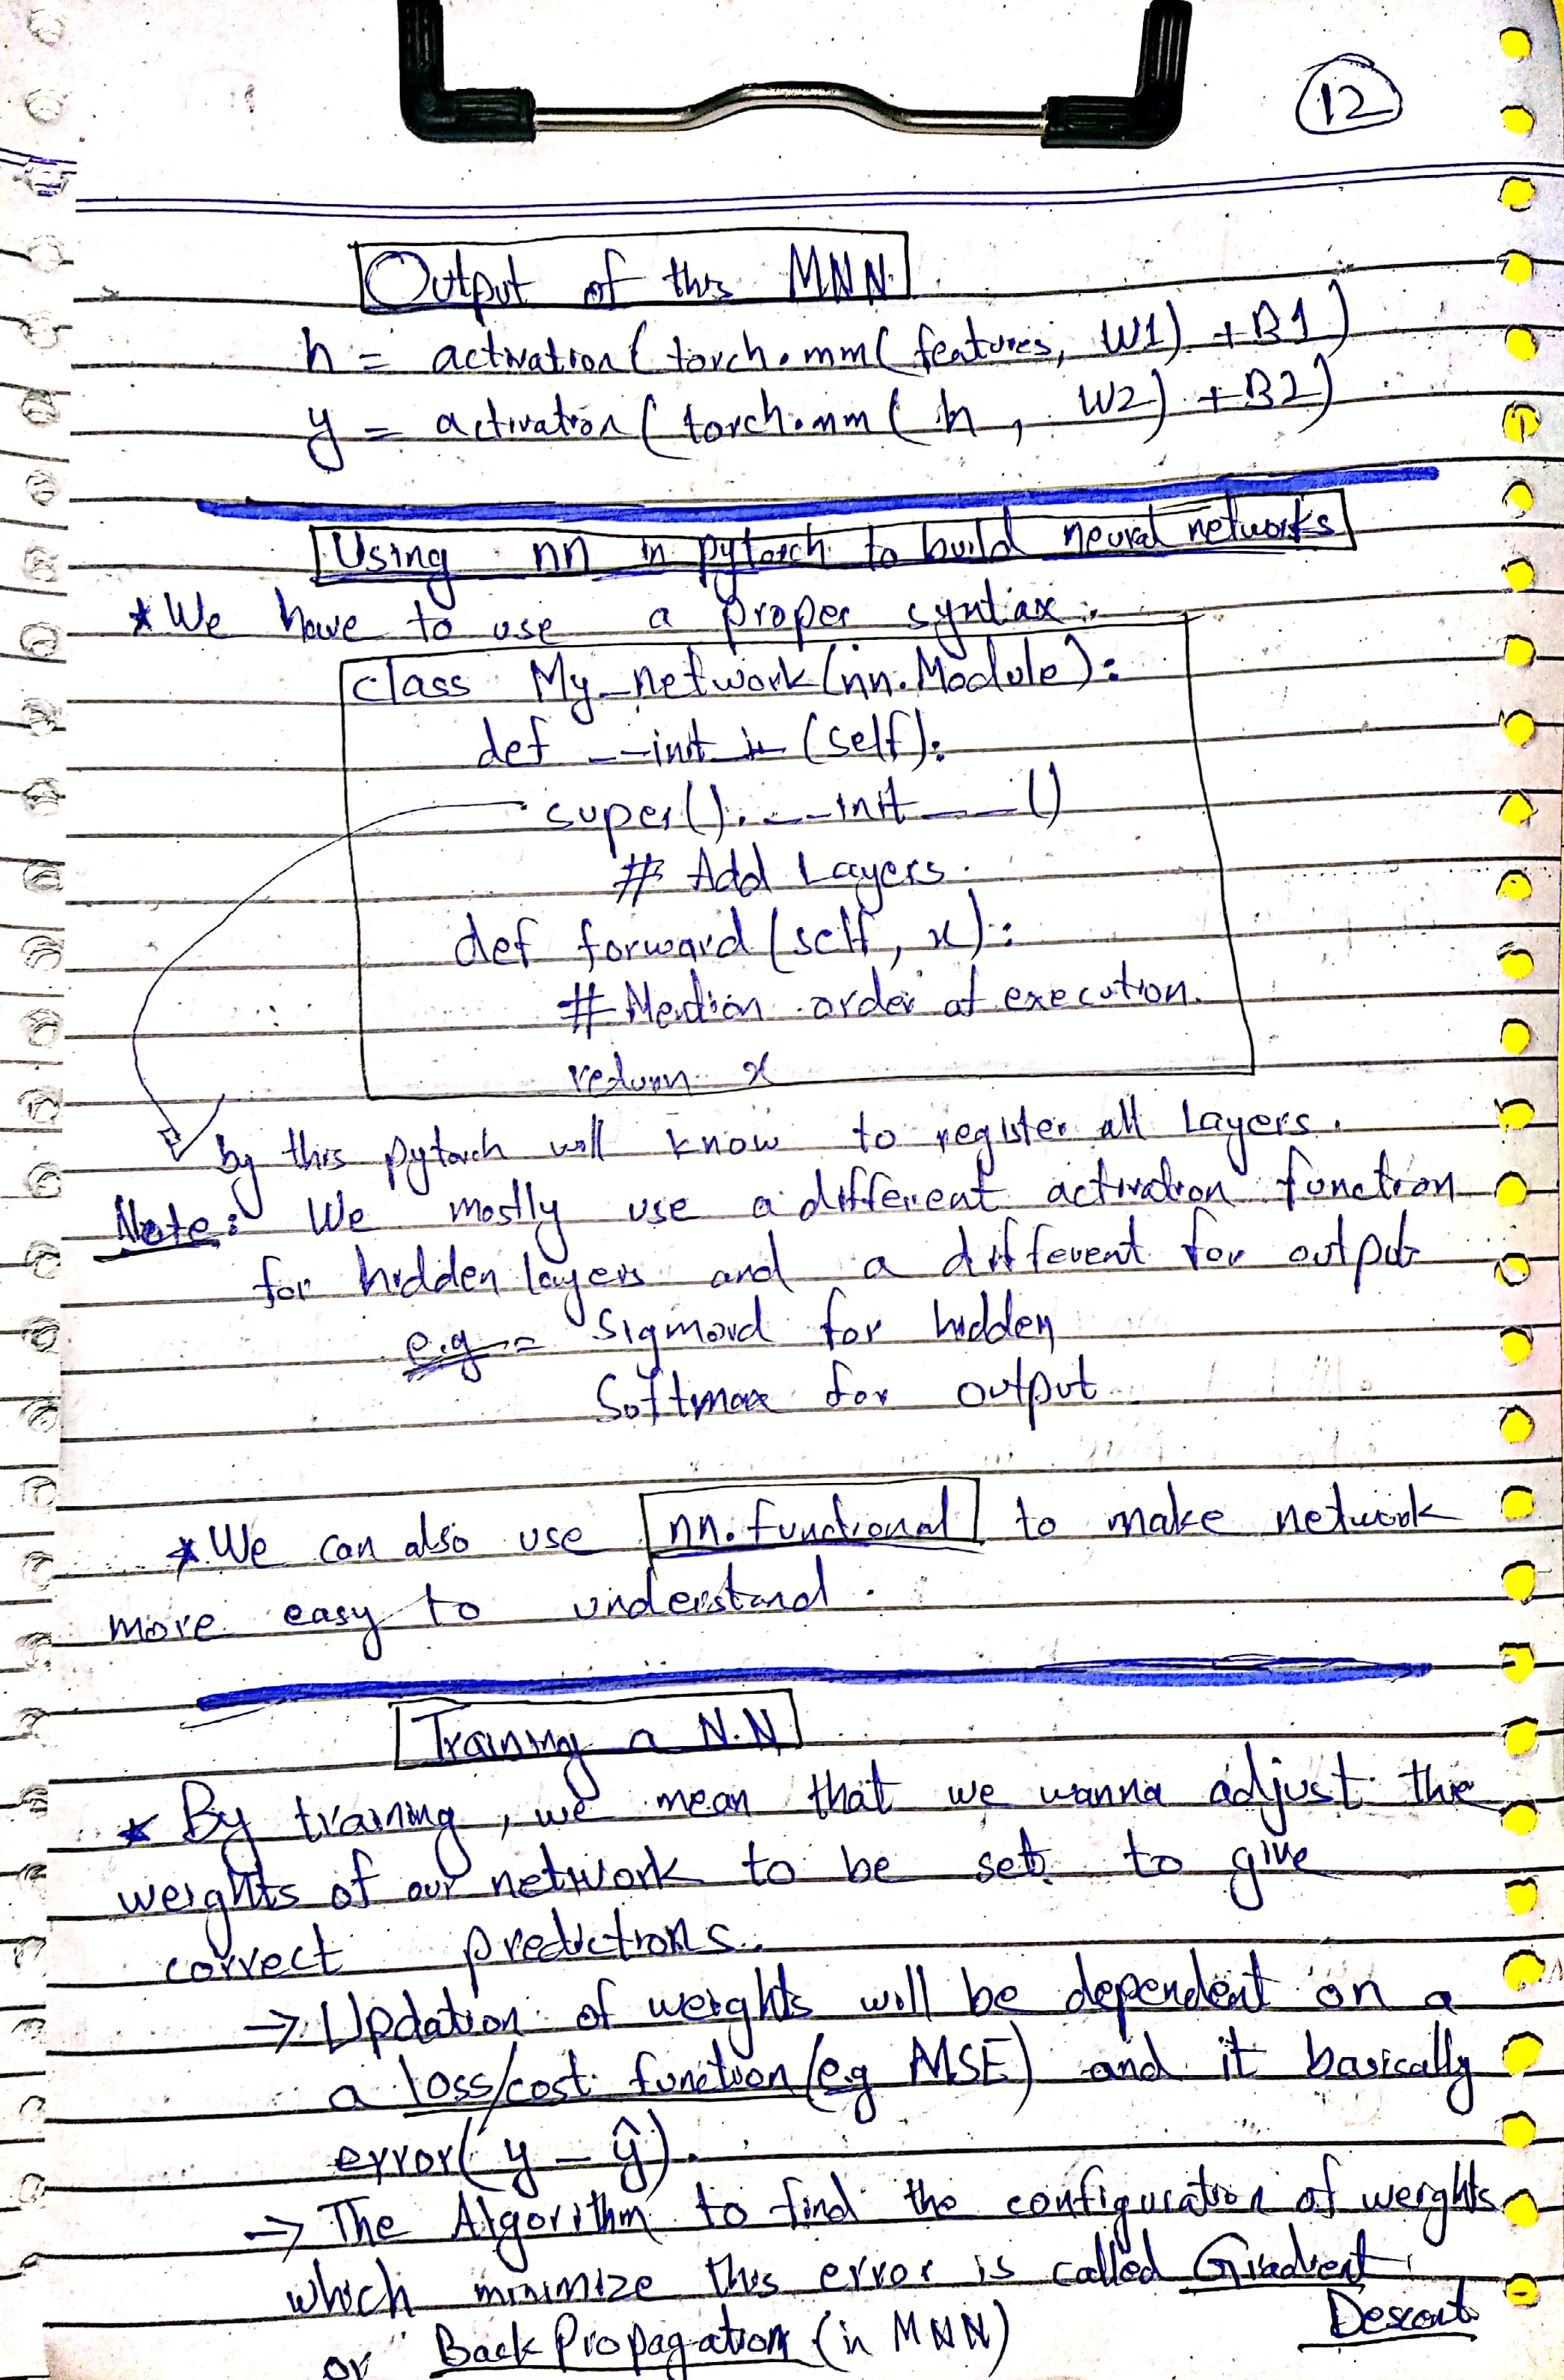 12
Output of this MNN
h = activation(torch.mm(features, W1) + B1)
y = activation(torch.mm(h, W2) + B2)
Using nn in pytorch to build neural networks
* We have to use a proper syntax:
class My_network(nn.Module):
def __init__(self):
super().__init__()
# Add Layers.
def forward(self, x):
# Mention order of execution.
return x
by this pytorch will know to register all Layers.
Note: We mostly use a different activation function
for hidden layers and a different for output
e.g = Sigmoid for hidden
Softmax for output
* We can also use nn.functional to make network
more easy to understand.
Training a N.N
* By training, we mean that we wanna adjust the
weights of our network to be set to give
correct predictions.
→ Updation of weights will be dependent on a
a loss/cost function (eg MSE) and it basically
error(y - ŷ).
→ The Algorithm to find the configuration of weights
which minimize this error is called Gradient
Descent
or Back Propagation (in MNN)